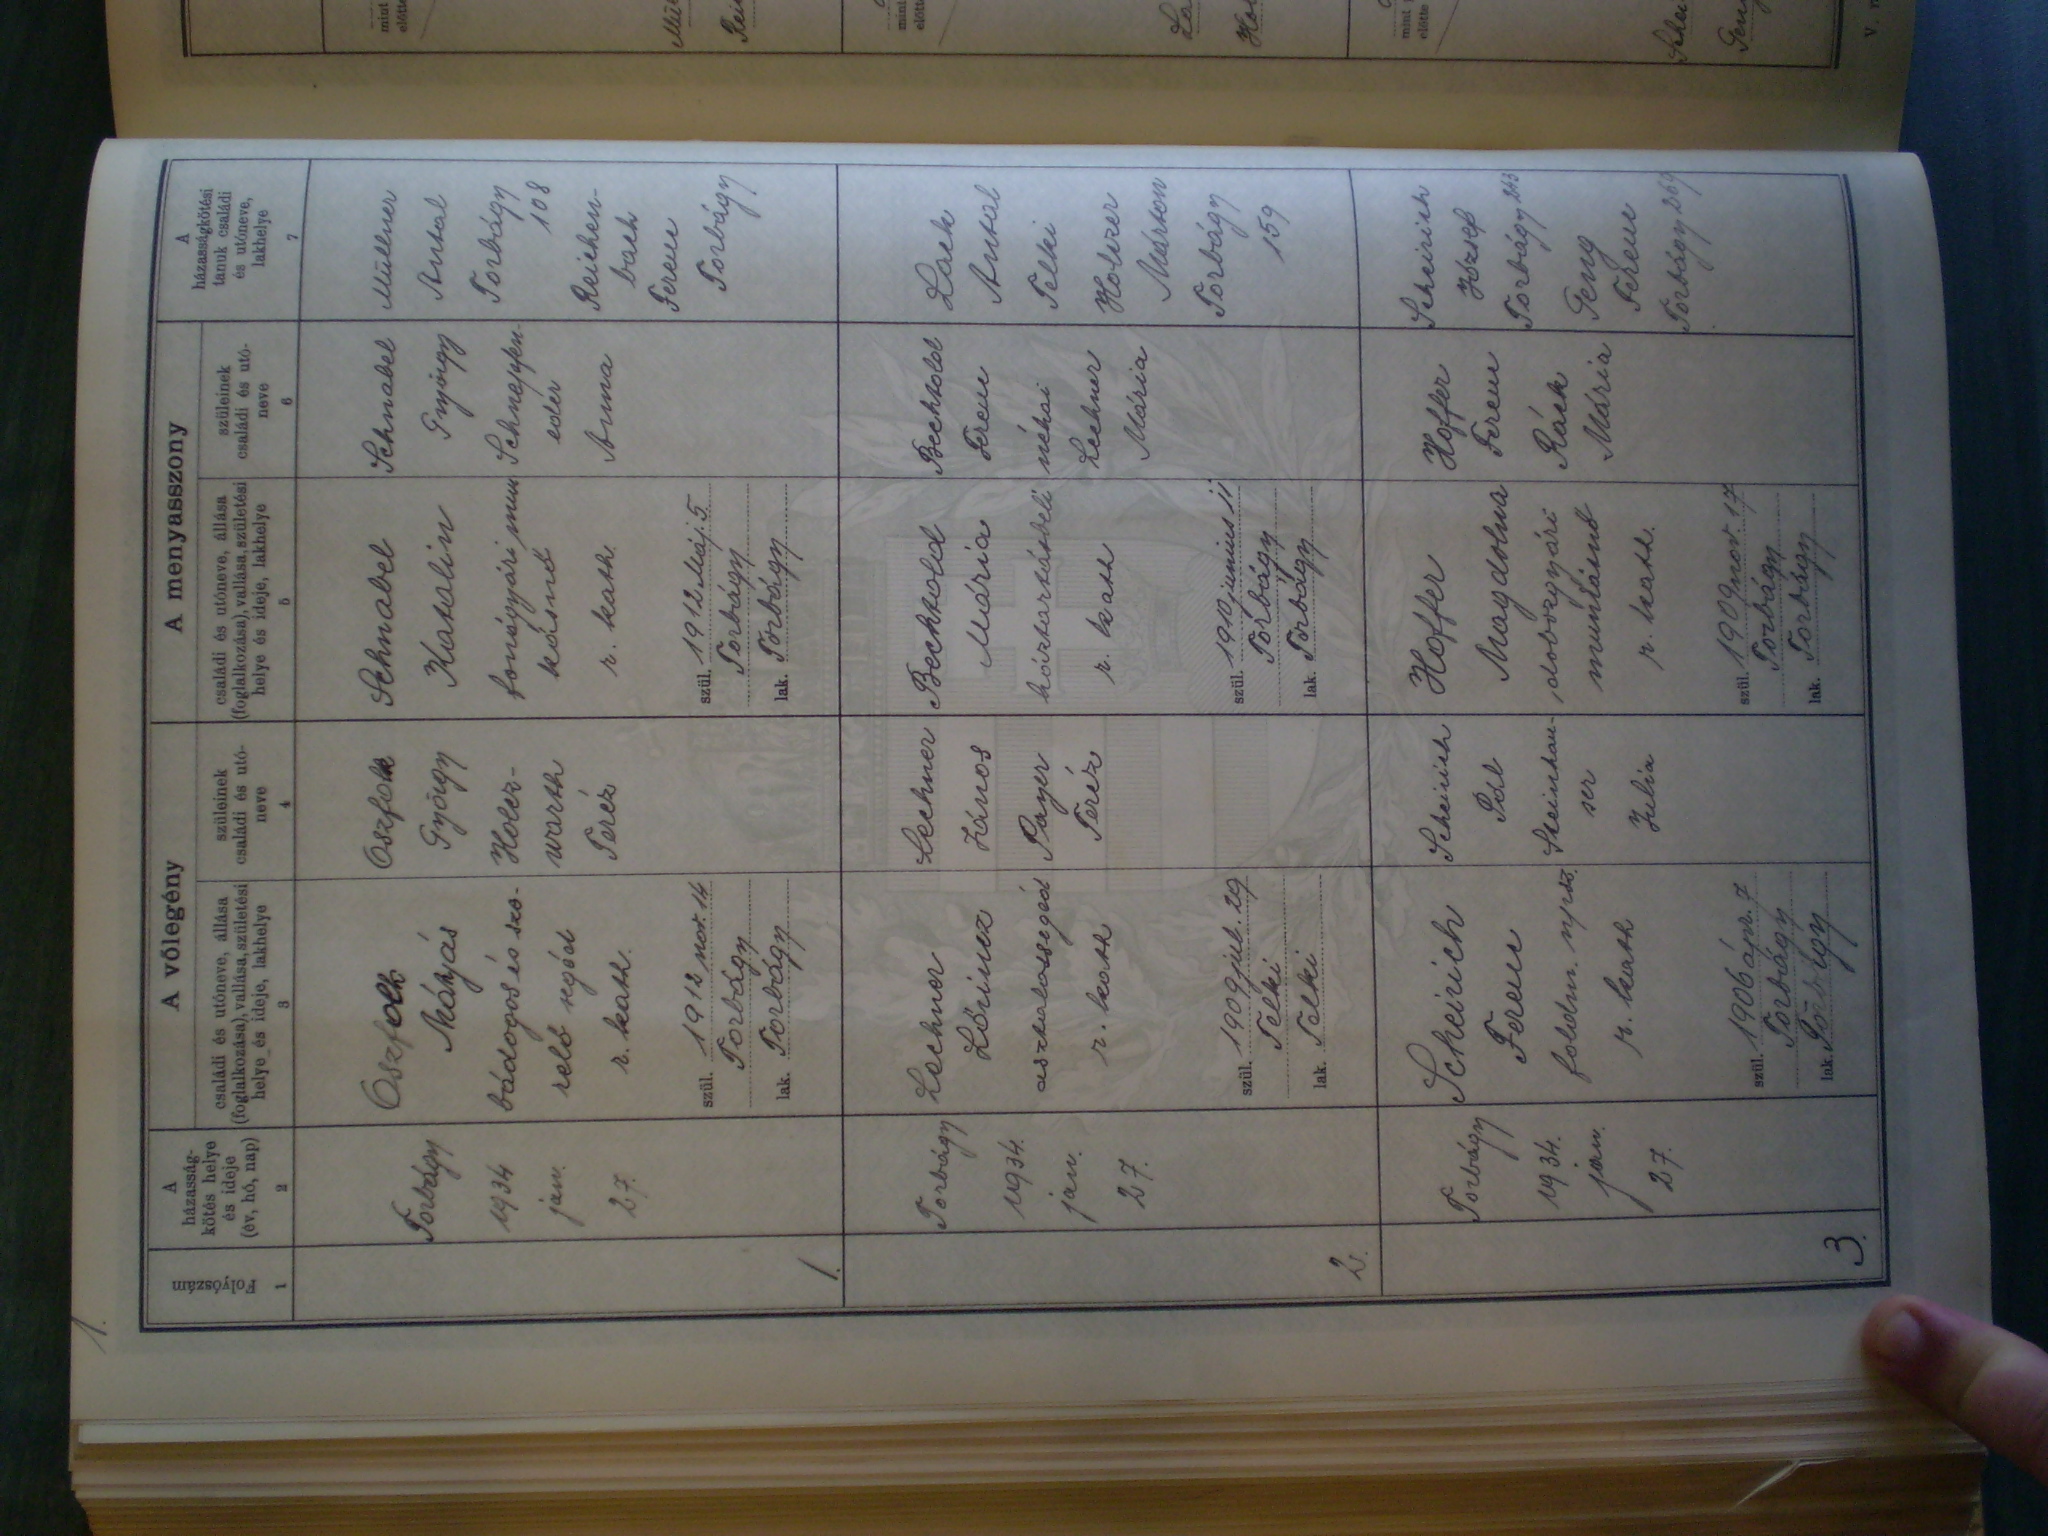 1.
A vőlegény
A menyasszony
Folyószám
A
házasság-
kötés helye
és ideje
(év, hó, nap)
családi és utóneve, állása
(foglalkozása), vallása, születési
helye és ideje, lakhelye
szüleinek
családi és utó-
neve
családi és utóneve, állása
(foglalkozása), vallása, születési
helye és ideje, lakhelye
szüleinek
családi és utó-
neve
A
házasságkötési
tanuk családi
és utóneve,
lakhelye
1
2
3
4
5
6
7
1.
Torbágy
1934
jan.
27.
Oszfolk
Mátyás
bádogos és sze-
relő segéd
r. kath.
szül. 1912 nov. 14
Torbágy
lak. Torbágy
Oszfolk
György
Holcz-
warth
Teréz
Schnabel
Katalin
fonógyári mun
kásnő
r. kath.
szül. 1912 máj. 5.
Torbágy
lak. Torbágy
Schnabel
György
Schneppen-
eder
Anna
Müllner
Antal
Torbágy
108
Reichen-
bach
Ferenc
Torbágy
2.
Torbágy
1934.
jan.
27.
Lechner
Lőrincz
asztalossegéd
r. kath
szül. 1909 jul. 29
Telki
lak. Telki
Lechner
János
Payer
Teréz
Bechtold
Mária
háztartásbeli
r. kath
szül. 1910 junius 11
Torbágy
lak. Torbágy
Bechtold
Ferenc
néhai
Lechner
Mária
Lack
Antal
Telki
Holczer
Márton
Torbágy
159
3.
Torbágy
1934.
jan.
27.
Scheirich
Ferenc
földm. npsz.
r. kath
szül. 1906 ápr. 7
Torbágy
lak. Torbágy
Scheirich
Pál
Steinhau-
ser
Julia
Hoffer
Magdolna
dobozgyári
munkásnő
r. kath.
szül. 1909 nov. 17
Torbágy
lak. Torbágy
Hoffer
Ferenc
Ráck
Mária
Scheirich
József
Torbágy 243
Geng
Ferenc
Torbágy 269